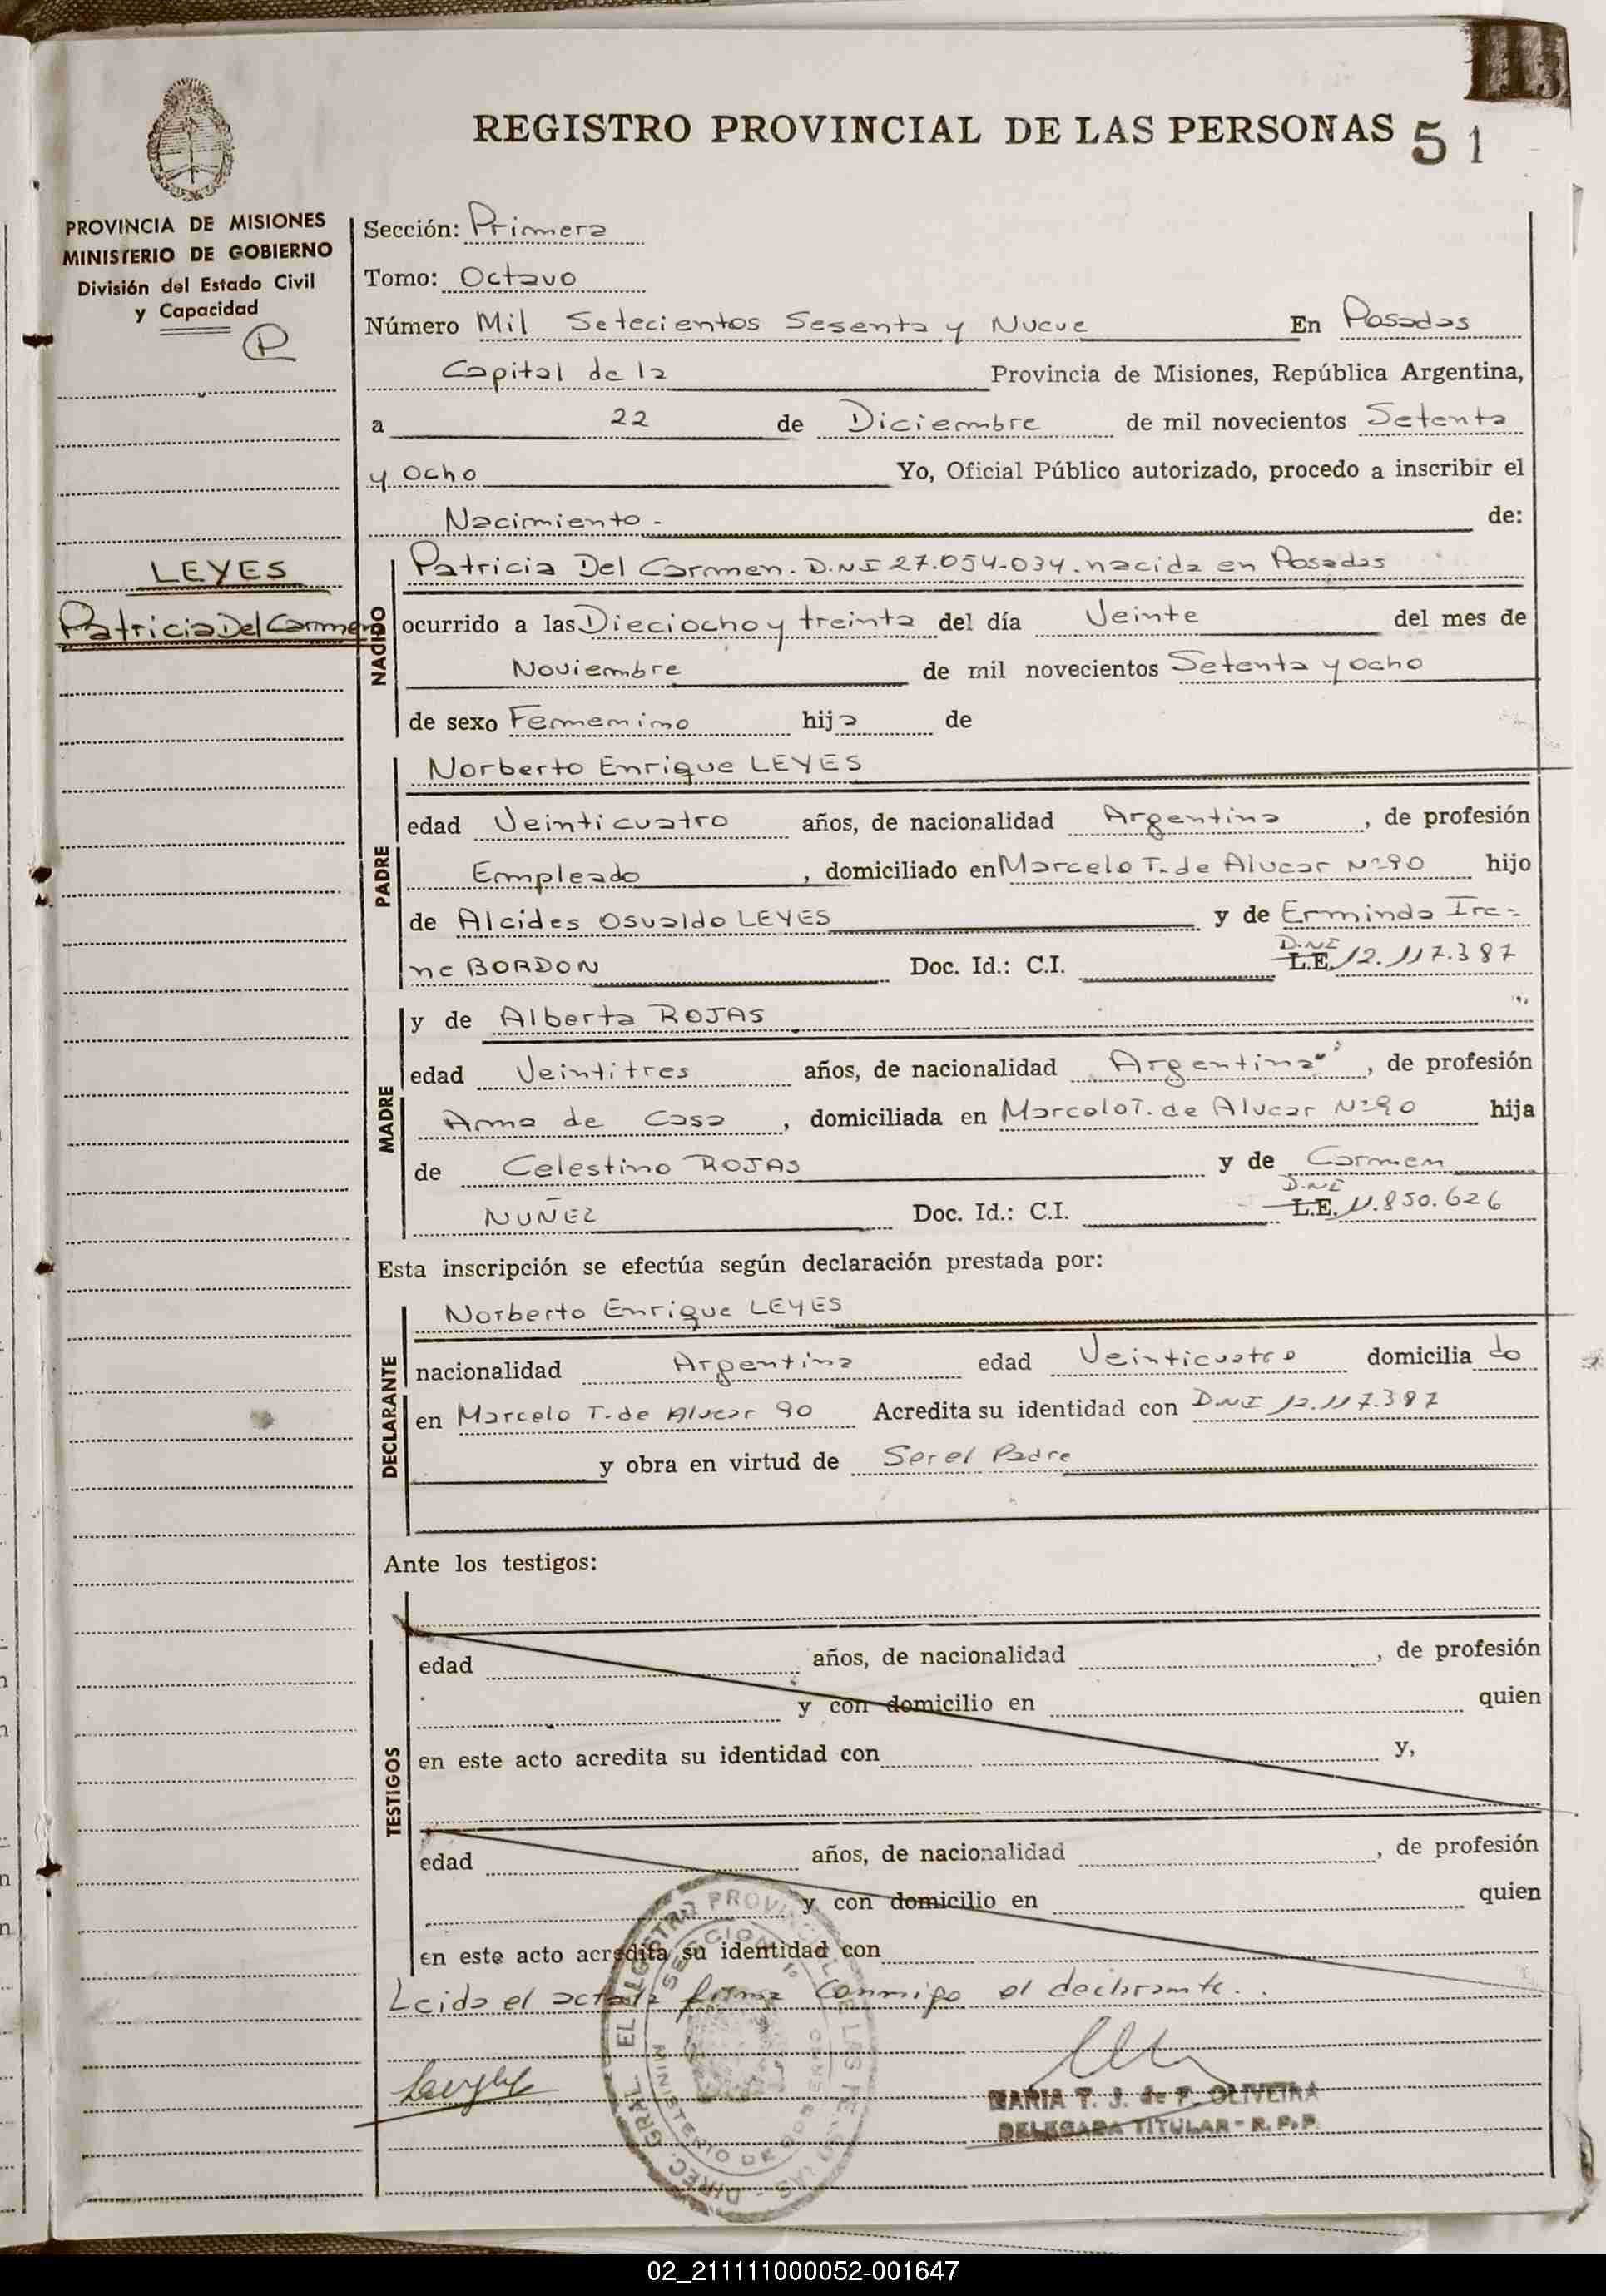 REGISTRO PROVINCIAL DE LAS PERSONAS 51
PROVINCIA DE MISIONES
MINISTERIO DE GOBIERNO
División del Estado Civil
y Capacidad
P
LEYES
Patricia Del Carmen
Sección: Primera
Tomo: Octavo
Número Mil Setecientos Sesenta y Nueve En Posadas
Capital de la Provincia de Misiones, República Argentina,
a 22 de Diciembre de mil novecientos Setenta
y Ocho Yo, Oficial Público autorizado, procedo a inscribir el
Nacimiento.- de:
NACIDO
Patricia Del Carmen. D.N.I 27.054-034. nacida en Posadas
ocurrido a las Dieciocho y treinta del día Veinte del mes de
Noviembre de mil novecientos Setenta y ocho
de sexo Fememino hija de
PADRE
Norberto Enrique LEYES
edad Veinticuatro años, de nacionalidad Argentina, de profesión
Empleado, domiciliado en Marcelo T. de Alvear Nº90 hijo
de Alcides Osvaldo LEYES y de Erminda Ire-
ne BORDON Doc. Id.: C.I. L.E. D.N.I 12.117.387
MADRE
y de Alberta ROJAS
edad Veintitres años, de nacionalidad Argentina, de profesión
Ama de Casa, domiciliada en Marcelo T. de Alvear Nº90 hija
de Celestino ROJAS y de Carmen
NUÑEZ Doc. Id.: C.I. L.E. D.N.I 11.850.626
Esta inscripción se efectúa según declaración prestada por:
DECLARANTE
Norberto Enrique LEYES
nacionalidad Argentina edad Veinticuatro domiciliado
en Marcelo T. de Alvear 90 Acredita su identidad con D.N.I 12.117.387
y obra en virtud de Ser el Padre
Ante los testigos:
TESTIGOS
edad años, de nacionalidad , de profesión
y con domicilio en quien
en este acto acredita su identidad con y,
edad años, de nacionalidad , de profesión
y con domicilio en quien
en este acto acredita su identidad con
Leida el acta la firma conmigo el declarante.
DIREC. GRAL. EL REGISTRO PROVINCIAL DE LAS PERSONAS
SECCION 1º
MINISTERIO DE GOBIERNO
MARIA T. J. de F. OLIVEIRA
DELEGADA TITULAR - R. P. P.
02_211111000052-001647